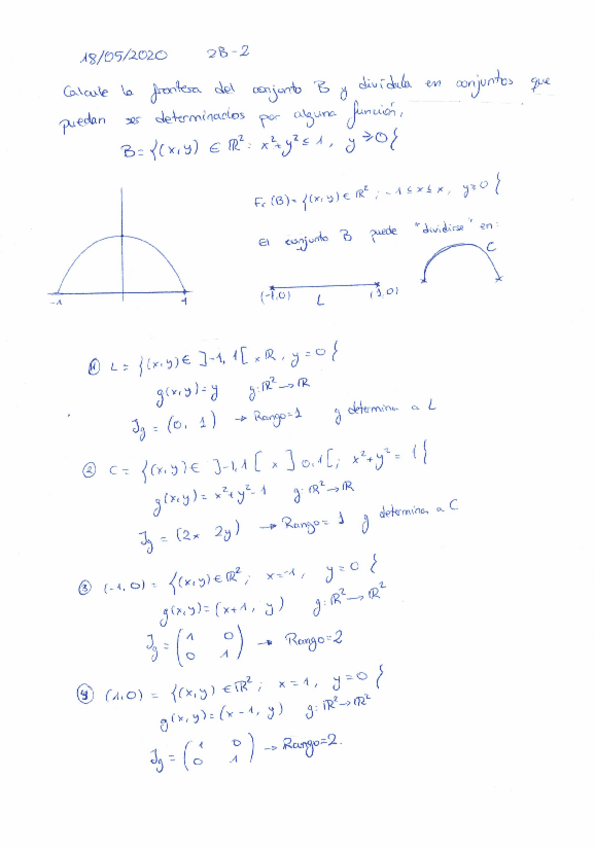 18/05/2020 2B-2
Calcule la frontera del conjunto B y divídala en conjuntos que
puedan ser determinados por alguna función,
B = {(x,y) ∈ ℝ² : x²+y² ≤ 1 , y ≥ 0}
Fr(B) = {(x,y) ∈ ℝ² ; -1 ≤ x ≤ x, y ≥ 0}
El conjunto B puede "dividirse" en:
-1 1
(-1,0) L (1,0)
C
① L = {(x,y) ∈ ]-1, 1[ x ℝ , y = 0}
g(x,y) = y g: ℝ² → ℝ
Jg = (0, 1) → Rango=1 g determina a L
② C = {(x,y) ∈ ]-1,1[ x ]0,1[ ; x²+y² = 1}
g(x,y) = x²+y²-1 g: ℝ² → ℝ
Jg = (2x 2y) → Rango= 1 g determina a C
③ (-1,0) = {(x,y) ∈ ℝ² ; x=-1, y=0}
g(x,y) = (x+1, y) g: ℝ² → ℝ²
Jg = (1 0
0 1) → Rango=2
④ (1,0) = {(x,y) ∈ ℝ² ; x=1, y=0}
g(x,y) = (x-1, y) g: ℝ² → ℝ²
Jg = (1 0
0 1) → Rango=2.